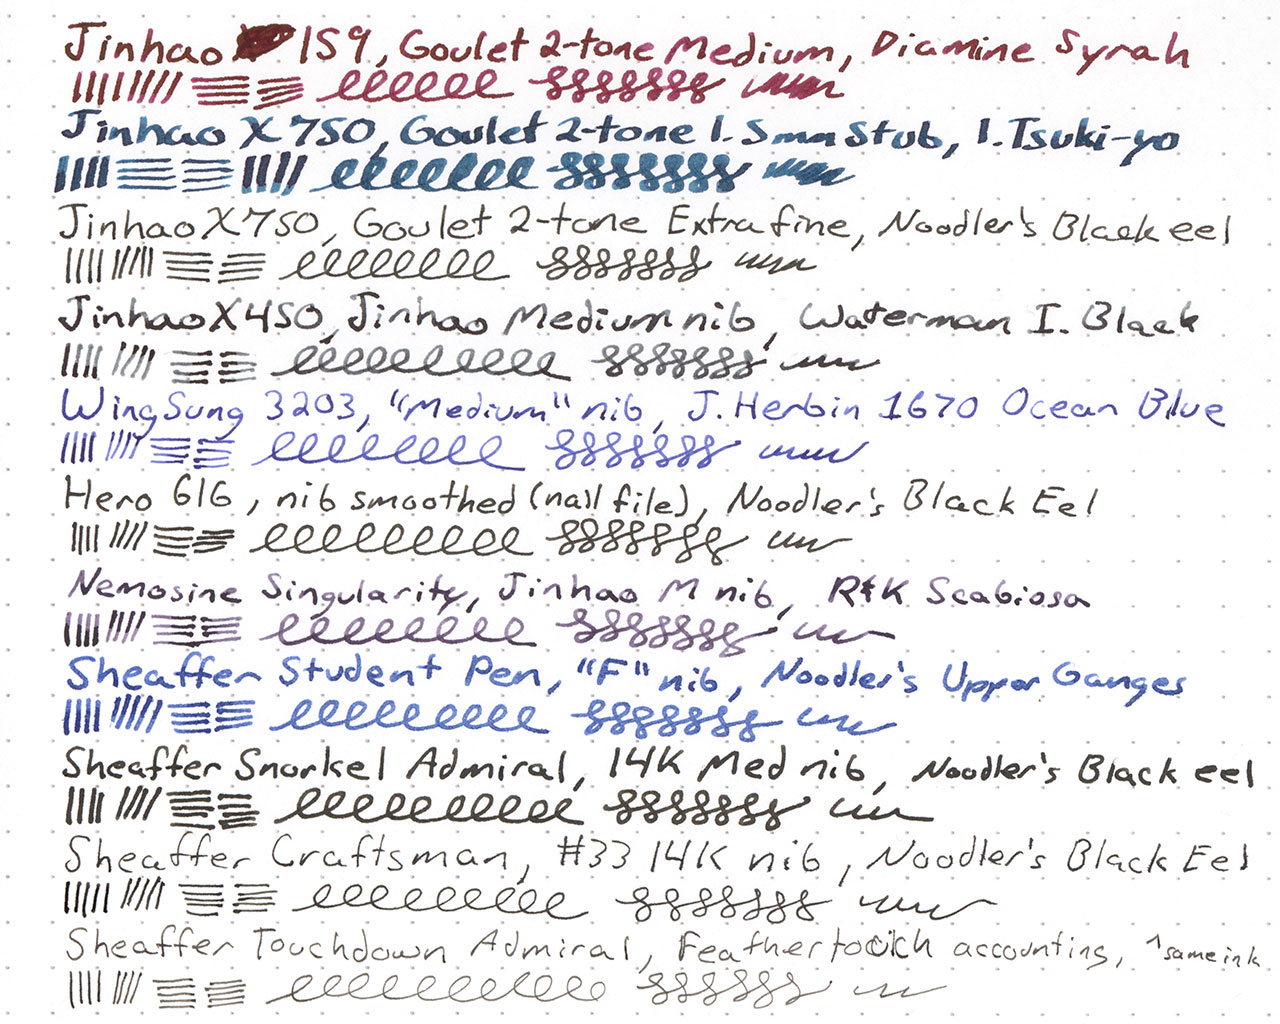 Jinhao 159, Goulet 2-tone Medium, Diamine Syrah
Jinhao X750, Goulet 2-tone 1.5mm Stub, I. Tsuki-yo
Jinhao X750, Goulet 2-tone Extra fine, Noodler's Black eel
Jinhao X450, Jinhao Medium nib, Waterman I. Black
Wing Sung 3203, "Medium" nib, J. Herbin 1670 Ocean Blue
Hero 616, nib smoothed (nail file), Noodler's Black Eel
Nemosine Singularity, Jinhao M nib, R&K Scabiosa
Sheaffer Student Pen, "F" nib, Noodler's Upper Ganges
Sheaffer Snorkel Admiral, 14K Med nib, Noodler's Black eel
Sheaffer Craftsman, #33 14K nib, Noodler's Black Eel
Sheaffer Touchdown Admiral, Feathertouch accounting, ^same ink